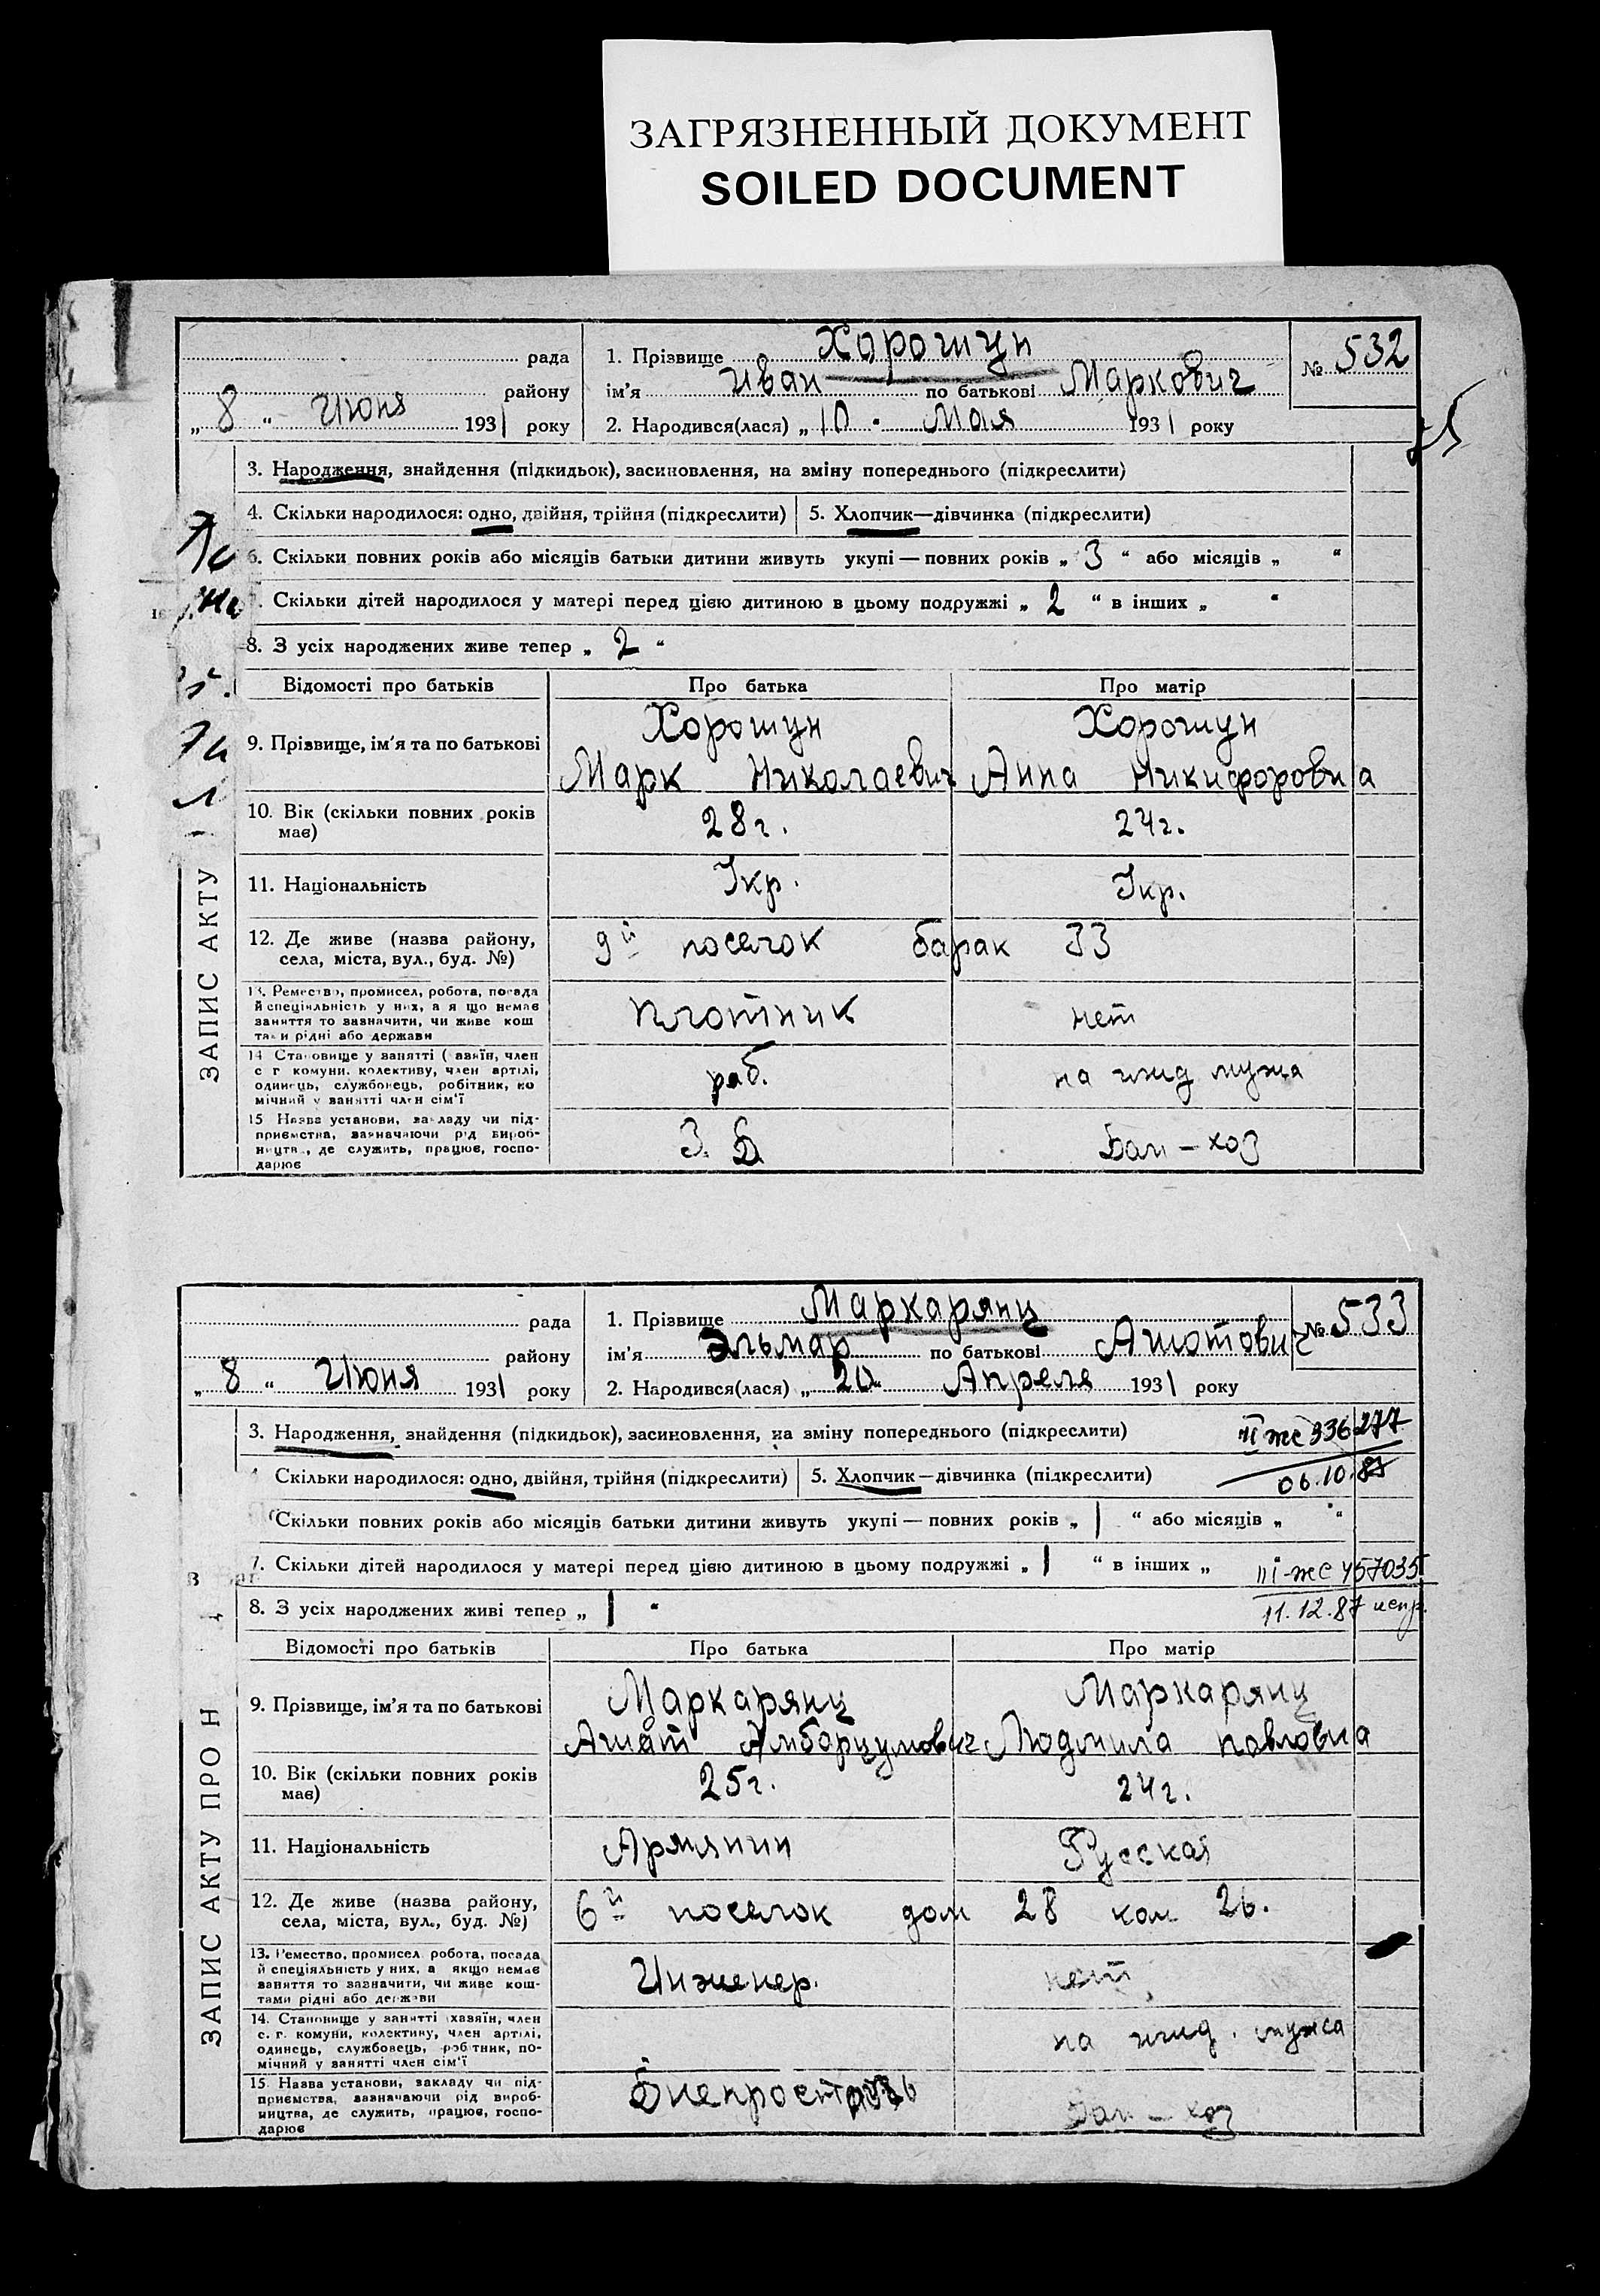 ЗАГРЯЗНЕННЫЙ ДОКУМЕНТ
SOILED DOCUMENT
рада
району
„ 8 “ Июня 1931 року
1. Прізвище Хорошун
ім’я Иван по батькові Маркович
2. Народився(лася) „ 10 “ Мая 1931 року
№ 532
3. Народження, знайдення (підкидьок), засиновлення, на зміну попереднього (підкреслити)
4. Скільки народилося: одно, двійня, трійня (підкреслити) 5. Хлопчик—дівчинка (підкреслити)
6. Скільки повних років або місяців батьки дитини живуть укупі — повних років „ 3 “ або місяців „ “
7. Скільки дітей народилося у матері перед цією дитиною в цьому подружжі „ 2 “ в інших „ “
8. З усіх народжених живе тепер „ 2 “
Відомості про батьків Про батька Про матір
9. Прізвище, ім’я та по батькові Хорошун Хорошун
Марк Николаевич Анна Никифоровна
10. Вік (скільки повних років має) 28г. 24г.
11. Національність Укр. Укр.
12. Де живе (назва району, 9й поселок барак 33
села, міста, вул., буд. №)
13. Ремество, промисел, робота, посада Плотник нет
й спеціяльність у них, а я що немає
заняття то зазначити, чи живе кош
тами рідні або держави
14 Становище у занятті (хазяїн, член раб. на ижд мужа
с г комуни, колективу, член артілі,
одинець, службовець, робітник, по
мічний у занятті член сім’ї
15 Назва установи, закладу чи під- З. Б Дом-хоз
приємства, зазначаючи рід вироб-
ництва, де служить, працює, госпо-
дарює
ЗАПИС АКТУ
рада
району
„ 8 “ Июня 1931 року
1. Прізвище Маркарянц
ім’я Эльмар по батькові Ашотович
2. Народився(лася) „ 20 “ Апреля 1931 року
№ 533
3. Народження, знайдення (підкидьок), засиновлення, на зміну попереднього (підкреслити)
III жс 336277
Скільки народилося: одно, двійня, трійня (підкреслити) 5. Хлопчик—дівчинка (підкреслити)
06.10.87
Скільки повних років або місяців батьки дитини живуть укупі — повних років „ 1 “ або місяців „ “
7. Скільки дітей народилося у матері перед цією дитиною в цьому подружжі „ 1 “ в інших „
III-жс 457035
8. З усіх народжених живі тепер „ 1 “
11.12.87 испр.
Відомості про батьків Про батька Про матір
9. Прізвище, ім’я та по батькові Маркарянц Маркарянц
Ашот Амбарцумович Людмила Павловна
10. Вік (скільки повних років має) 25г. 24г.
11. Національність Армянин Русская
12. Де живе (назва району, 6й поселок дом 28 ком 26.
села, міста, вул., буд. №)
13. Ремество, промисел робота, посада Инженер. нет
й спеціяльність у них, а якщо немає
заняття то зазначити, чи живе кош-
тами рідні або держави
14. Становище у занятті хазяїн, член на ижд. мужа
с. г. комуни, колективу, член артілі,
одинець, службовець, робітник, по-
мічний у занятті член сім’ї
15. Назва установи, закладу чи під- Днепрострой Дом-хоз
приємства, зазначаючи рід вироб-
ництва, де служить, працює, госпо-
дарює
ЗАПИС АКТУ ПРО Н